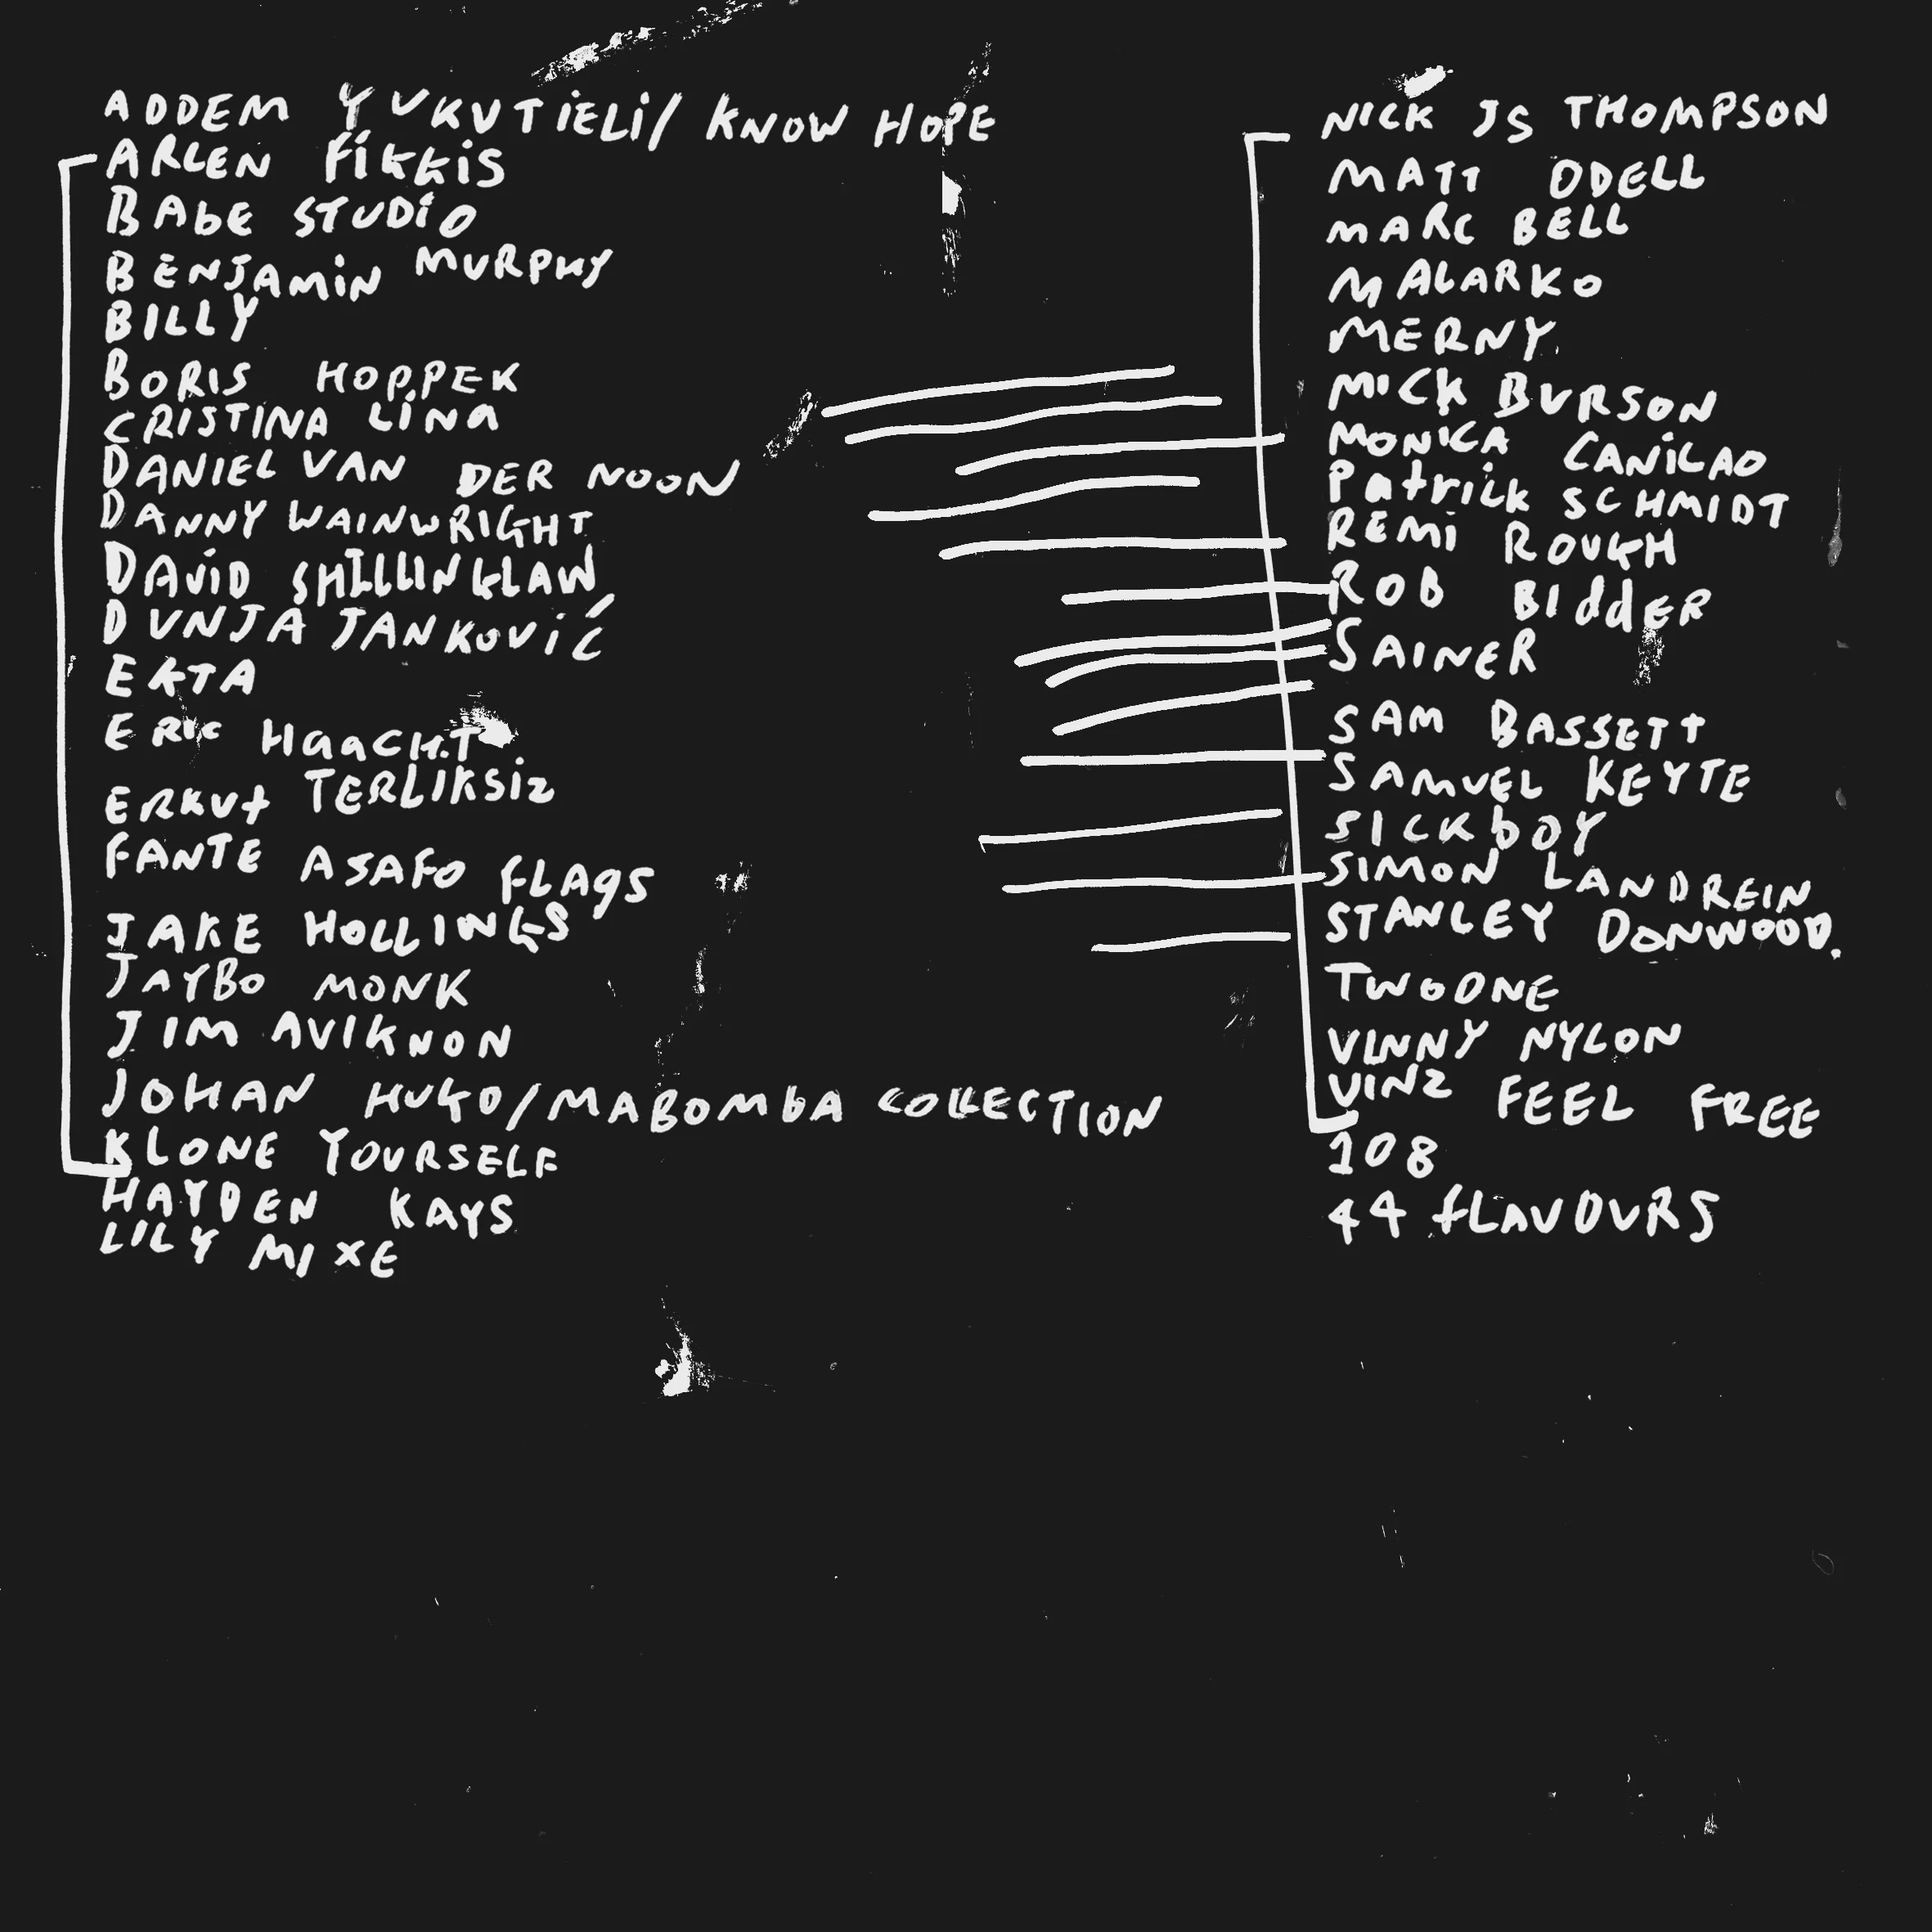 ADDEM YUKUTIELI/ KNOW HOPE
ARLEN FIGGIS
BAbE STUDiO
BENJAMIN MURPHY
BILLY
BORIS HOPPEK
CRISTINA LINA
DANIEL VAN DER NOON
DANNY WAINWRIGHT
DAViD SHILLINGLAW
DUNJA JANKOVIĆ
EKTA
ERIC HaaCHT
ERKUt TERLIKSIZ
FANTE ASAFO FLAgS
JAKE HOLLINGS
JAYBO MONK
JIM AVIGNON
JOHAN HUGO/MABOMbA COLLECTION
KLONE YOURSELF
HAYDEN KAYS
LILY MIXE
NICK JS THOMPSON
MATT ODELL
MARC BELL
MALARKO
MERNY.
MICK BURSON
MONICA CANILAO
PatriCk SCHMIDT
REMi ROUGH
ROB BIddER
SAINER
SAM BASSETt
SAMUEL KEYTE
SICKbOY
SIMON LANDREIN
STANLEY DONWOOD.
TWOONE
VINNY NYLON
VINZ FEEL FREE
108
44 fLAVOURS